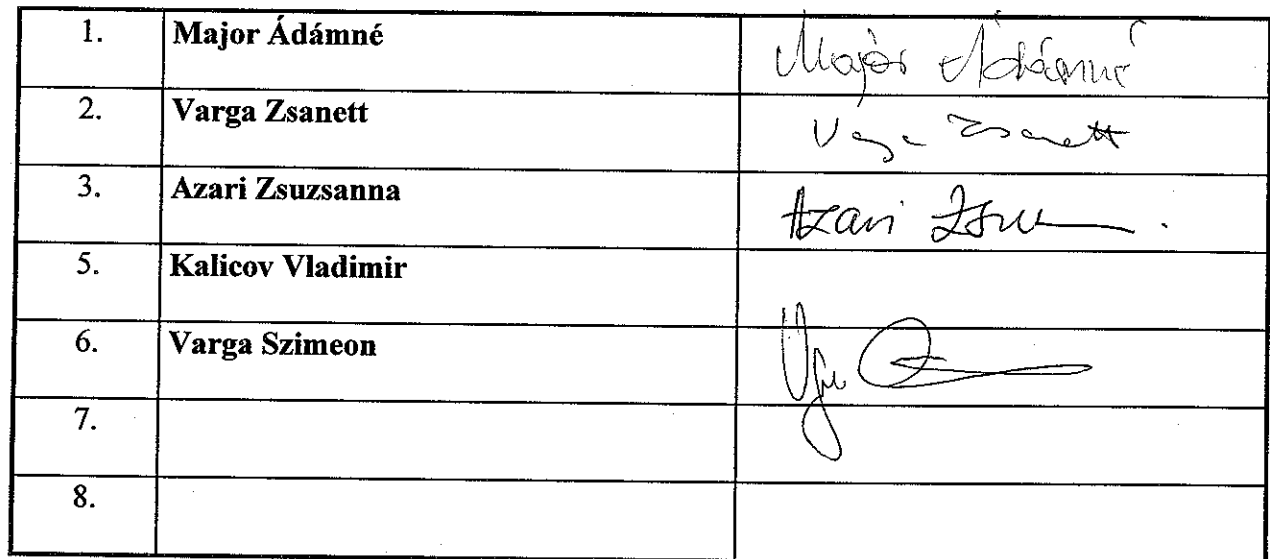 1. Major Ádámné Major Ádámné
2. Varga Zsanett Varga Zsanett
3. Azari Zsuzsanna Azari
5. Kalicov Vladimir
6. Varga Szimeon
7.
8.